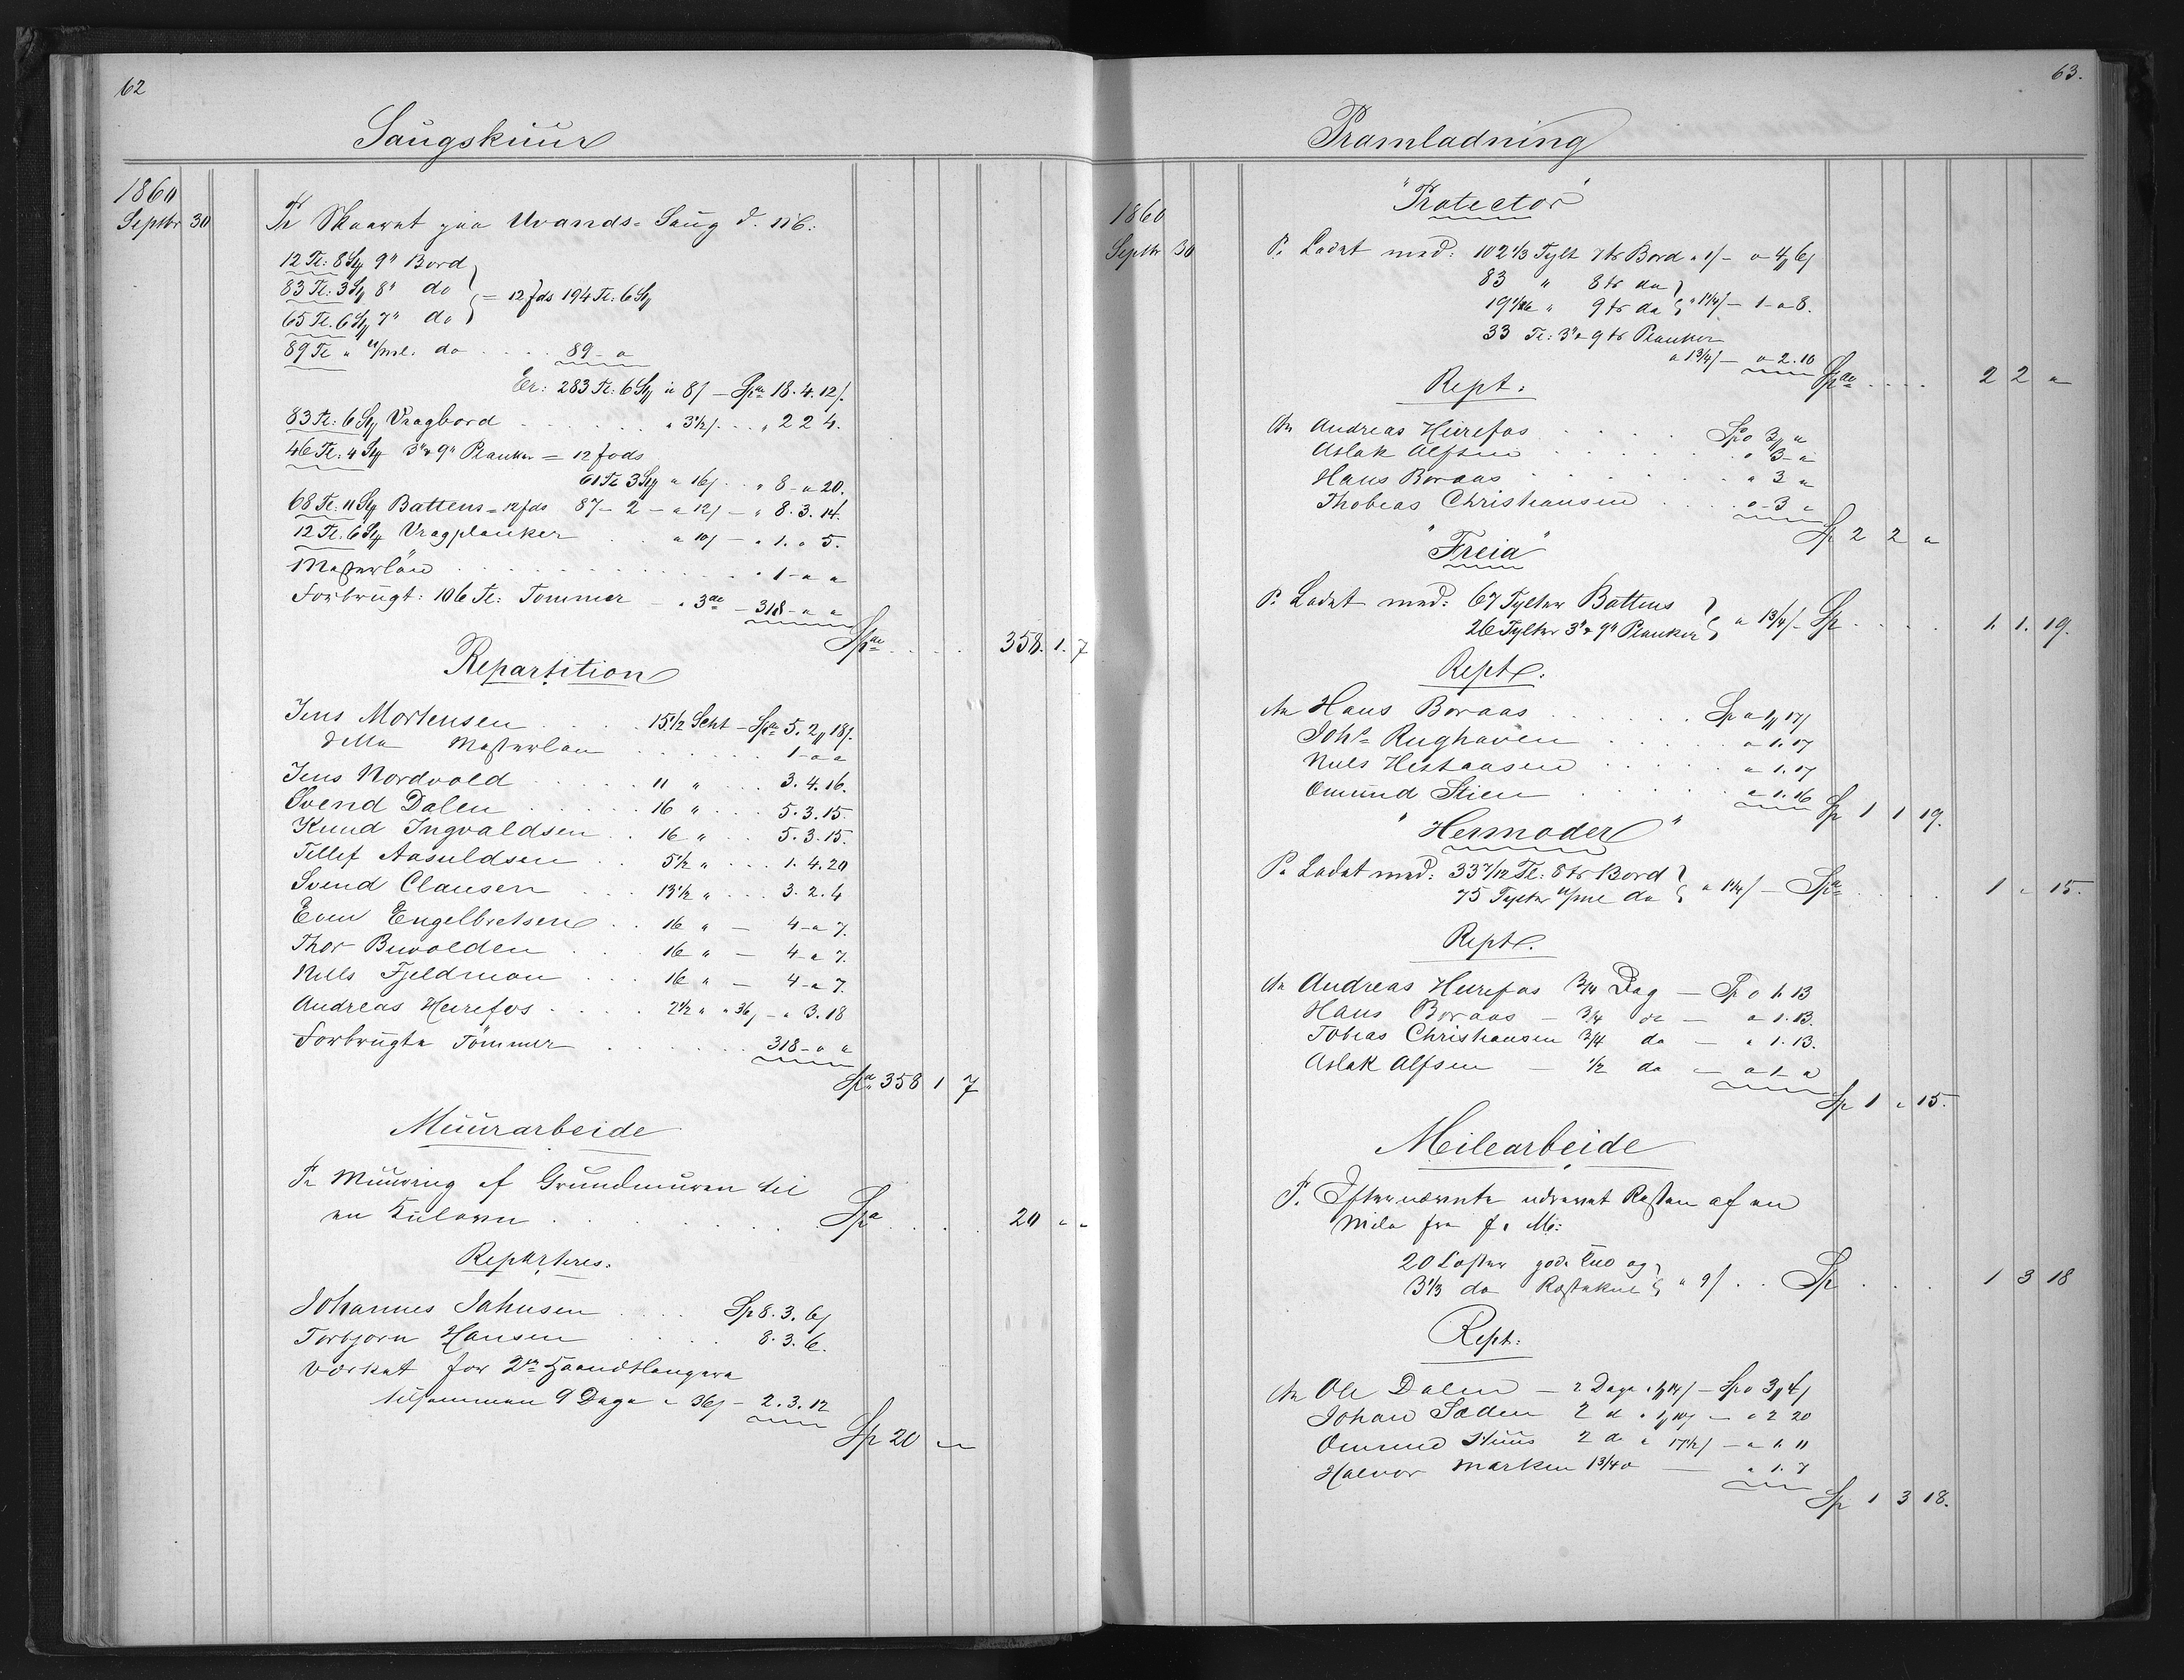 62
Saugskuur
1860
Septbr 30
Pr Skaaret paa Uvands-Saug d. M6:
12 Tl: 8 Stk 9" Bord
83 Tl: 3 Stk 8" do = 12 fds 194 Tl: 6 Stk
65 Tl. 6 Stk 7" do
89 Tl " u/ml. do . . . . 89 - "
Er: 283 Tl: 6 Stk a 8/ - Spd 18. 4. 12/.
83 Tl: 6 Stk Vragbord . . . . . . " 3½/ . . . " 2 2 4.
46 Tl: 4 Stk 3"x9" Planker = 12 fods
61 Tl 3 Stk a 16/ . . " 8 - " 20.
68 Tl: 11 Stk Battens = 12 fds 87 - 2 - a 12/ - " 8. 3. 14.
12 Tl: 6 Stk Vragplanker . . a 10/ - " 1. " 5.
Mesterløn . . . . . . . . . . 1 - " "
Forbrugt: 106 Tl: Tømmer - a 3de - 318 - " "
Spd . . . . 358. 1. 7
Repartition
Jens Mortensen . . . . 15½ Skt - Spd 5. 2 " 18/.
ditto Mesterløn . . . . . . 1 - " "
Jens Nordvold . . . . . 11 " . . . 3. 4. 16.
Svend Dalen . . . . . 16 " . . . 5. 3. 15.
Knud Ingvaldsen . . 16 " . . . 5. 3. 15.
Tellef Aasuldsen . . 5½ " . . . 1. 4. 20
Svend Clausen . . . 13½ " . . . 3. 2. 4
Even Engelbretsen . . 16 " - 4 - " 7.
Thor Buvolden . . . 16 " - 4 - " 7.
Nills Fjeldmon . . . 16 " - 4 - " 7.
Andreas Heirefos . . . . 2½ " a 36/ - " 3. 18
Forbrugte Tømmer . . . . . . 318 - " "
Spd 358 1 7
Muurarbeide
Pr Muuring af Grundmuren til
en Kulovn . . . . . . . . Spd . . . . 20 " "
Reparteres.
Johannes Jahnsen . . . . Sp 8. 3. 6/
Torbjørn Hansen . . . . . 8. 3. 6.
Værket for 2de Haandtlangere
tilsammen 9 Dage a 36/ - 2. 3. 12
Sp 20 " "
63.
Pramladning
1860
Septbr 30
"Protector"
Pr Ladet med: 102⅓ Tylt 7 tr Bord a 1/ - " 4 " 6/
83 " 8 tr do
19 1/12 " 9 tr do a 1¼/ - 1 - " 8.
33 Tl: 3"x 9 tr Planker
a 1¾/ - " 2. 10
Spd . . . . 2 2 "
Rept.
An Andreas Heirefos . . . . Sp " 3 " "
Aslak Alfsen . . . . . . " 3 - "
Hans Boraas . . . . . . " 3 "
Thobeas Christiansen . . . . " - 3 "
Sp 2 2 "
"Freia"
Pr Ladet med: 67 Tylter Battens
26 Tylter 3"x9" Planker a 1¾/ - Sp . . . . 1. 1. 19.
Rept.
An Hans Boraas . . . . . . Sp " 1 " 17/
Johs Rughaven . . . . . " 1. 17
Nuls Hestaasen . . . . . " 1. 17
Omund Stien . . . . . . " 1. 16
Sp 1 1 19.
"Hermoder"
Pr Ladet med: 33 7/12 Tl: 8 tr Bord
75 Tylter u/ml do a 1¼/ - Spd . . . . 1 " 15.
Rept.
An Andreas Heirefos ¾ Dag - Sp " 1. 13
Hans Boraas - ¾ do - " 1. 13.
Tobias Christiansen ¾ do - " 1. 13.
Aslak Alfsen - ½ do - " 1 - "
Sp 1 " 15.
Meilearbeide
Pr Efternævnte udrevet Resten af en
Mile fra f. M:
20 Lester gode Kul og
3⅓ do Røstekul a 9/ . . Sp . . . . 1 3 18
Rept:
An Ole Dalen - 2 Dage a 1 " 14/ - Sp " 3 " 4/
Johan Sæden 2 d a 1 " 10/ - " 2 20
Omund Huus 2 do a 17½/ - " 1. 11
Halvor Marken 1¾ do - " 1. 7
Sp 1 3 18.